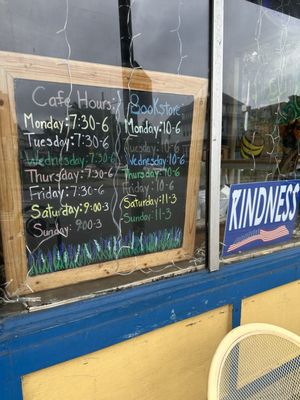 Cafe Hours:
Monday: 7:30-6
Tuesday: 7:30-6
Wednesday: 7:30-6
Thursday: 7:30-6
Friday: 7:30-6
Saturday: 9:00-3
Sunday: 9:00-3
Bookstore:
Monday: 10-6
Tuesday: 10-6
Wednesday: 10-6
Thursday: 10-6
Friday: 10-6
Saturday: 11-3
Sunday: 11-3
KINDNESS